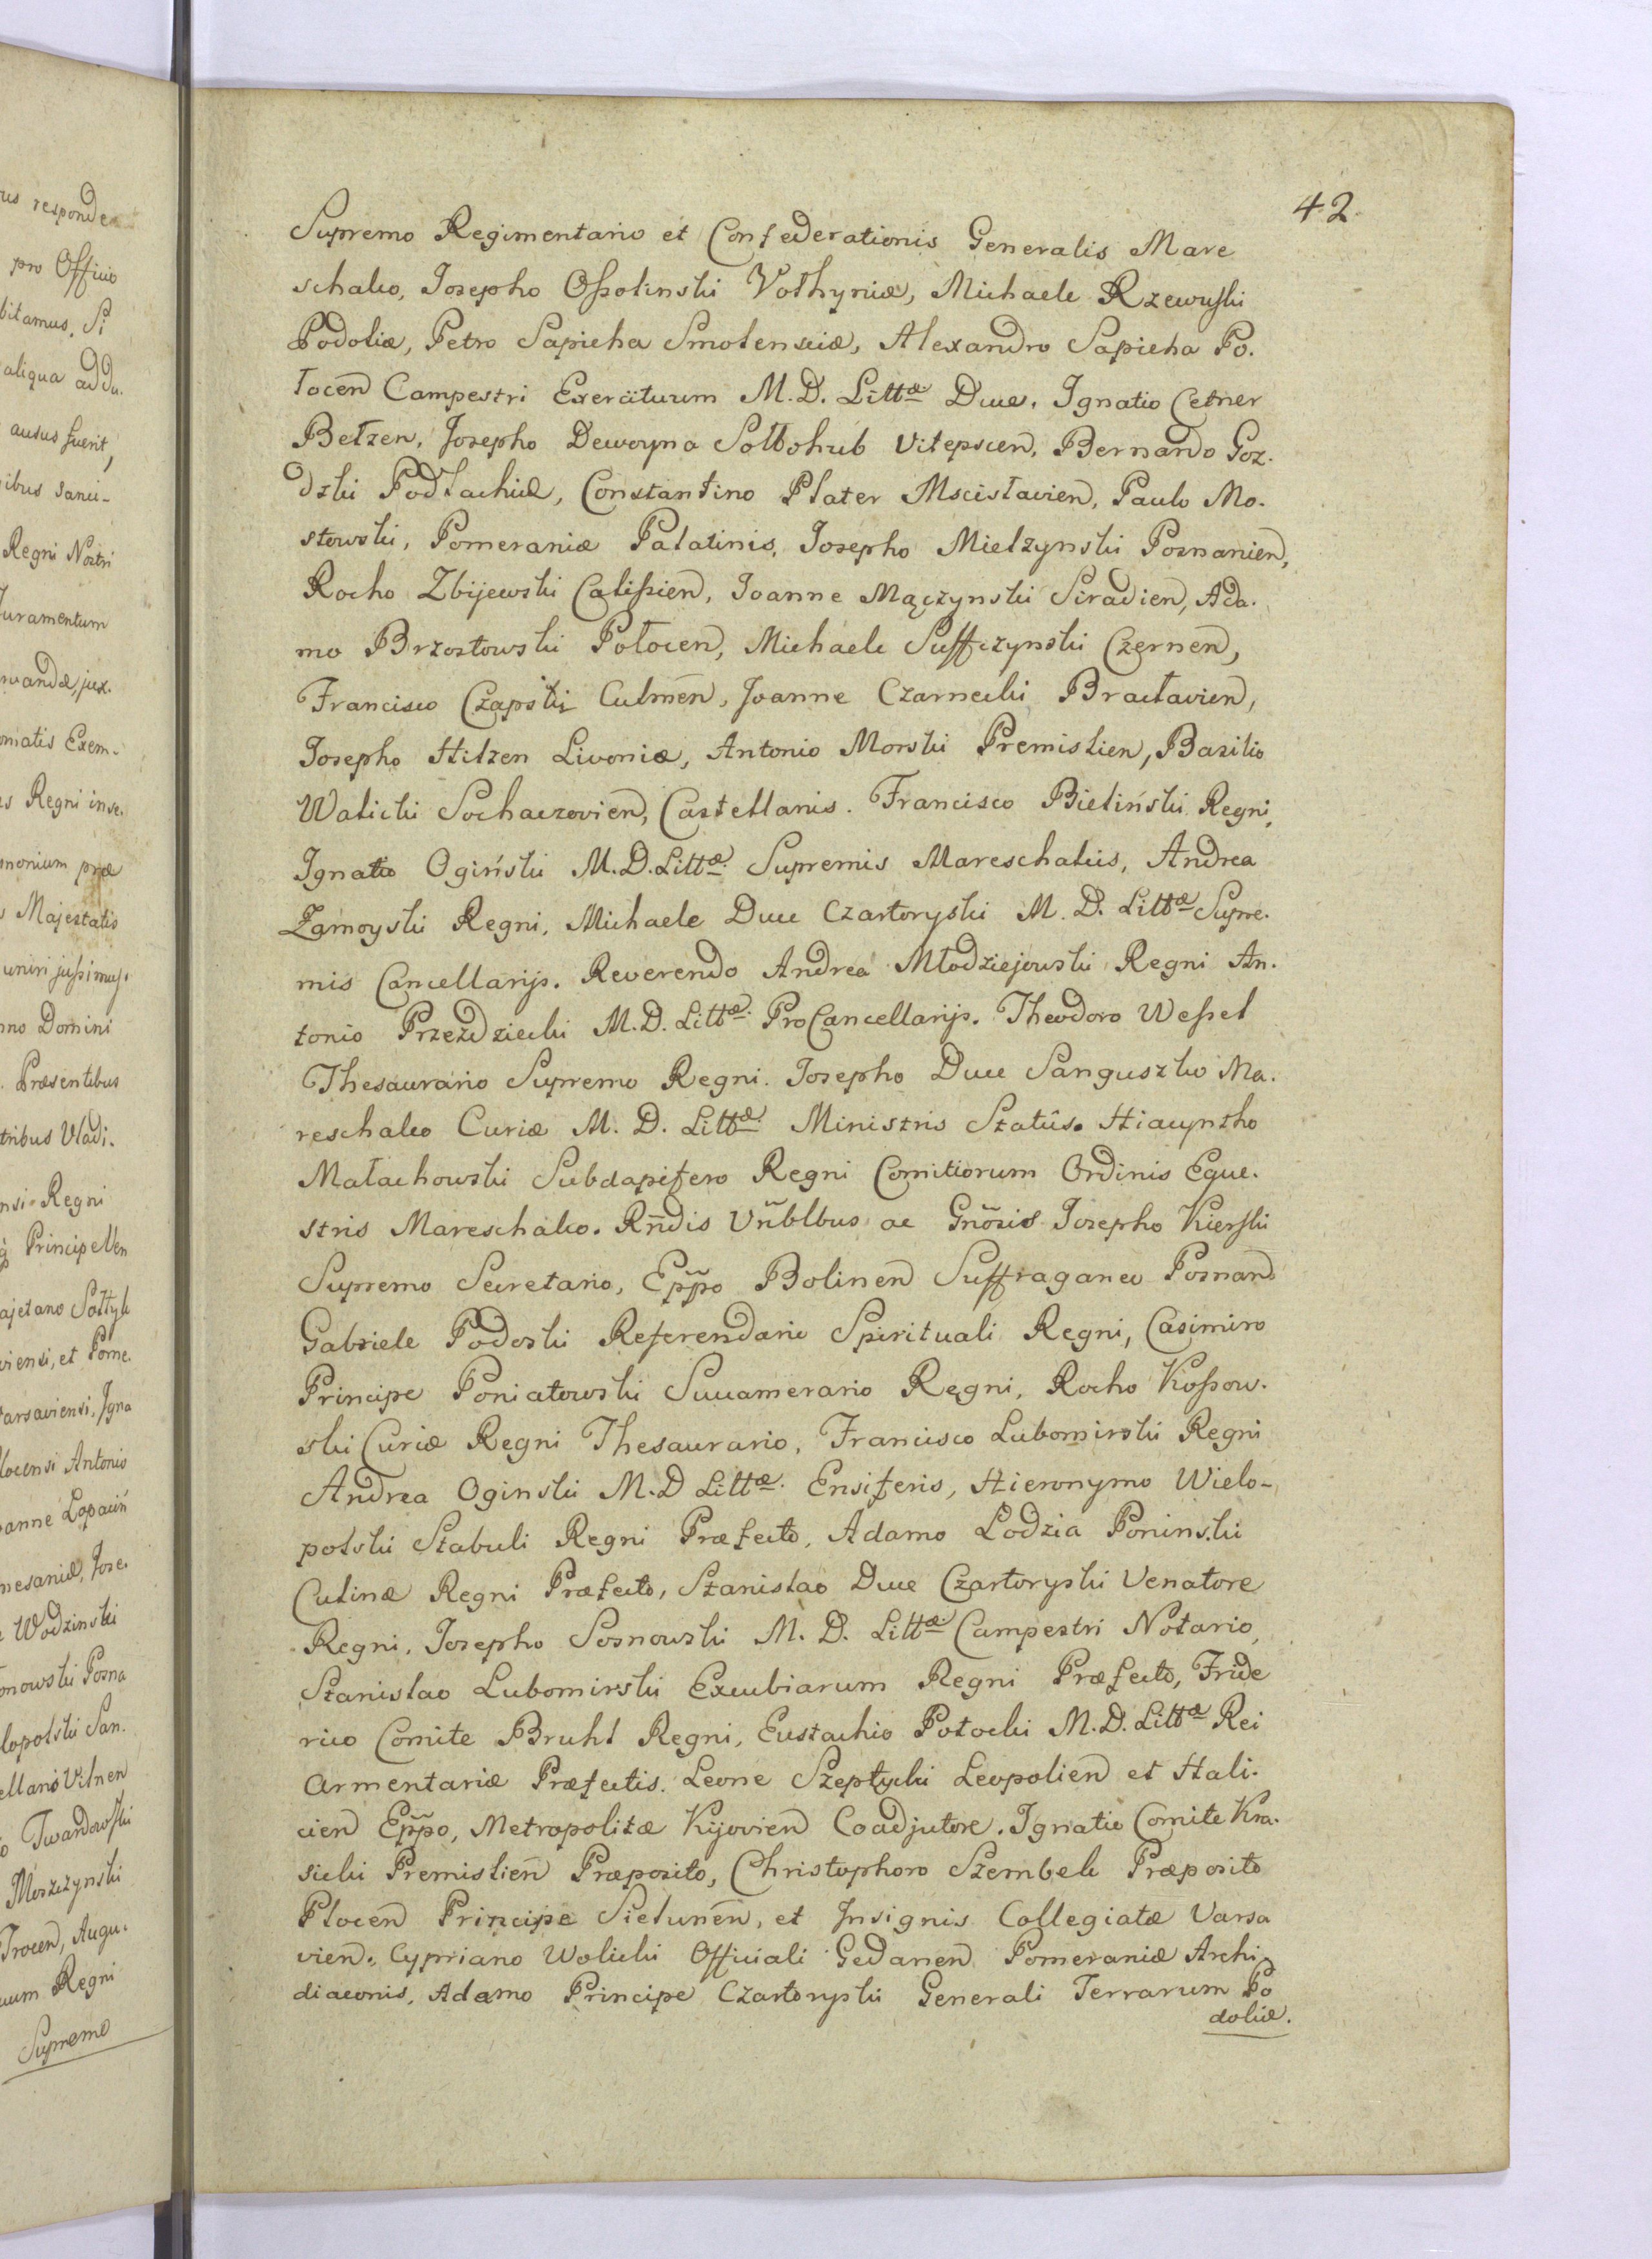 us responde
pro Officio
bitamus. Si
aliqua addu.
ausus fuerit,
ibus sanci-
Regni Nostri
Juramentum
rvandæ, jux.
omatis Exem-
s Regni inse.
monium præ
s Majestatis
uniri jussimus.
nno Domini
. Præsentibus
tribus Vladi.
nsi Regni
Principe Ven
ajetano Sołtyk
viensi, et Pome.
arsaviensi, Igna
locensi Antonio
anne Łopaciń
mesaniæ, Jose.
Wodzinski
onowski Posna
lopolski San.
ellano Vilnen
o Twardowski
Moszczynski
Trocen, Augu.
uum Regni
Supremo
42.
Supremo Regimentario et Confederationis Generalis Mare
schalco, Josepho Ossolinski Vołhyniæ, Michaele Rzewuski
Podoliæ, Petro Sapieha Smolensciæ, Alexandro Sapieha Po.
łocen̄ Campestri Exercituum M. D. Littæ Duce. Ignatio Cetner
Bełzen, Josepho Dewoyna Sołłohub Vitepscen̄, Bernardo Goz.
dzki Podłachiæ, Constantino Plater Mscisłavien̄, Paulo Mo.
stowski, Pomeraniæ Palatinis, Josepho Mielzynski Posnanien̄,
Rocho Zbijewski Calissien̄, Joanne Mączynski Siradien̄, Ada.
mo Brzostowski Połocen̄, Michaele Suffczynski Czernen̄,
Francisco Czapski Culmen̄, Joanne Czarnecki Bracłavien̄,
Josepho Hilzen Livoniæ, Antonio Morski Premislien̄, Basilio
Walicki Sochaczovien̄, Castellanis. Francisco Bieliński Regni,
Ignatio Ogiński M. D. Littæ Supremis Mareschalcis, Andrea
Zamoyski Regni, Michaele Duce Czartoryski M. D. Littæ Supre.
mis Cancellarijs. Reverendo Andrea Młodziejowski Regni An.
tonio Przezdziecki M. D. Littæ ProCancellarijs. Theodoro Wessel
Thesaurario Supremo Regni. Josepho Duce Sanguszko Ma.
reschalco Curiæ M. D. Littæ Ministris Statûs. Hiacyntho
Małachowski Subdapifero Regni Comitiorum Ordinis Eque.
stris Mareschalco. Rñdis Vñblbus ac Gñosis Josepho Kierski
Supremo Secretario, Epp̃o Bolinen̄ Suffraganeo Posnan̄
Gabriele Podoski Referendario Spirituali Regni, Casimiro
Principe Poniatowski Succamerario Regni, Rocho Kossow.
ski Curiæ Regni Thesaurario, Francisco Lubomirski Regni
Andrea Oginski M. D Littæ. Ensiferis, Hieronymo Wielo-
polski Stabuli Regni Præfecto, Adamo Lodzia Poninski
Culinæ Regni Præfecto, Stanislao Duce Czartoryski Venatore
Regni, Josepho Sosnowski M. D. Littæ Campestri Notario,
Stanislao Lubomirski Excubiarum Regni Præfecto, Fride
rico Comite Bruhl Regni, Eustachio Potocki M. D. Littæ Rei
Armentariæ Præfectis. Leone Szeptycki Leopolien̄ et Hali.
cien̄ Epp̃o, Metropolitæ Kijovien̄ Coadjutore. Ignatio Comite Kra.
sicki Premislien̄ Præposito, Christophoro Szembek Præposito
Plocen̄ Principe Sielunen̄, et Insignis Collegiatæ Varsa
vien. Cypriano Wolicki Officiali Gedanen̄ Pomeraniæ Archi
diaconis, Adamo Principe Czartoryski Generali Terrarum Po
doliæ.